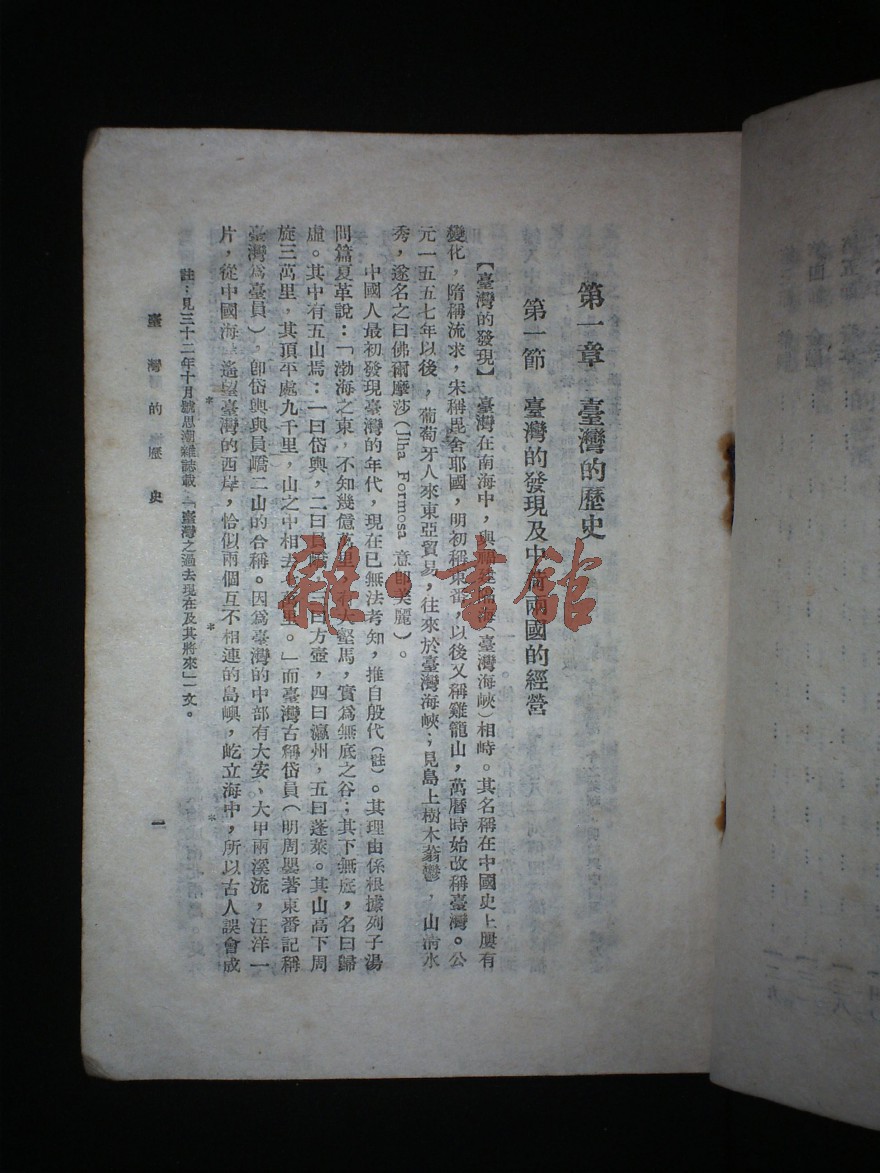 第一章　臺灣的歷史
第一節　臺灣的發現及中荷兩國的經營
【臺灣的發現】　臺灣在南海中，與福建隔海（臺灣海峽）相峙。其名稱在中國史上屢有
變化，隋稱流求，宋稱毘舍耶國，明初稱東番，以後又稱雞籠山，萬曆時始改稱臺灣。公
元一五五七年以後，葡萄牙人來東亞貿易，往來於臺灣海峽；見島上樹木蓊鬱，山清水
秀，遂名之曰佛爾摩莎（Jlha Formosa 意即美麗）。
中國人最初發現臺灣的年代，現在已無法考知，推自殷代（註）。其理由係根據列子湯
問篇夏革說：「渤海之東，不知幾億萬里，有大壑焉，實為無底之谷；其下無底，名曰歸
虛。其中有五山焉：一曰岱輿，二曰員嶠，三曰方壺，四曰瀛州，五曰蓬萊。其山高下周
旋三萬里，其頂平處九千里，山之中相去　萬里。」而臺灣古稱岱員（明周嬰著東番記稱
臺灣為臺員），卽岱輿與員嶠二山的合稱。因為臺灣的中部有大安、大甲兩溪流，汪洋一
片，從中國海上遙望臺灣的西岸，恰似兩個互不相連的島嶼，屹立海中，所以古人誤會成
註：見三十二年十月號思潮雜誌載「臺灣之過去現在及其將來」一文。
臺灣的歷史
一
雜·書館